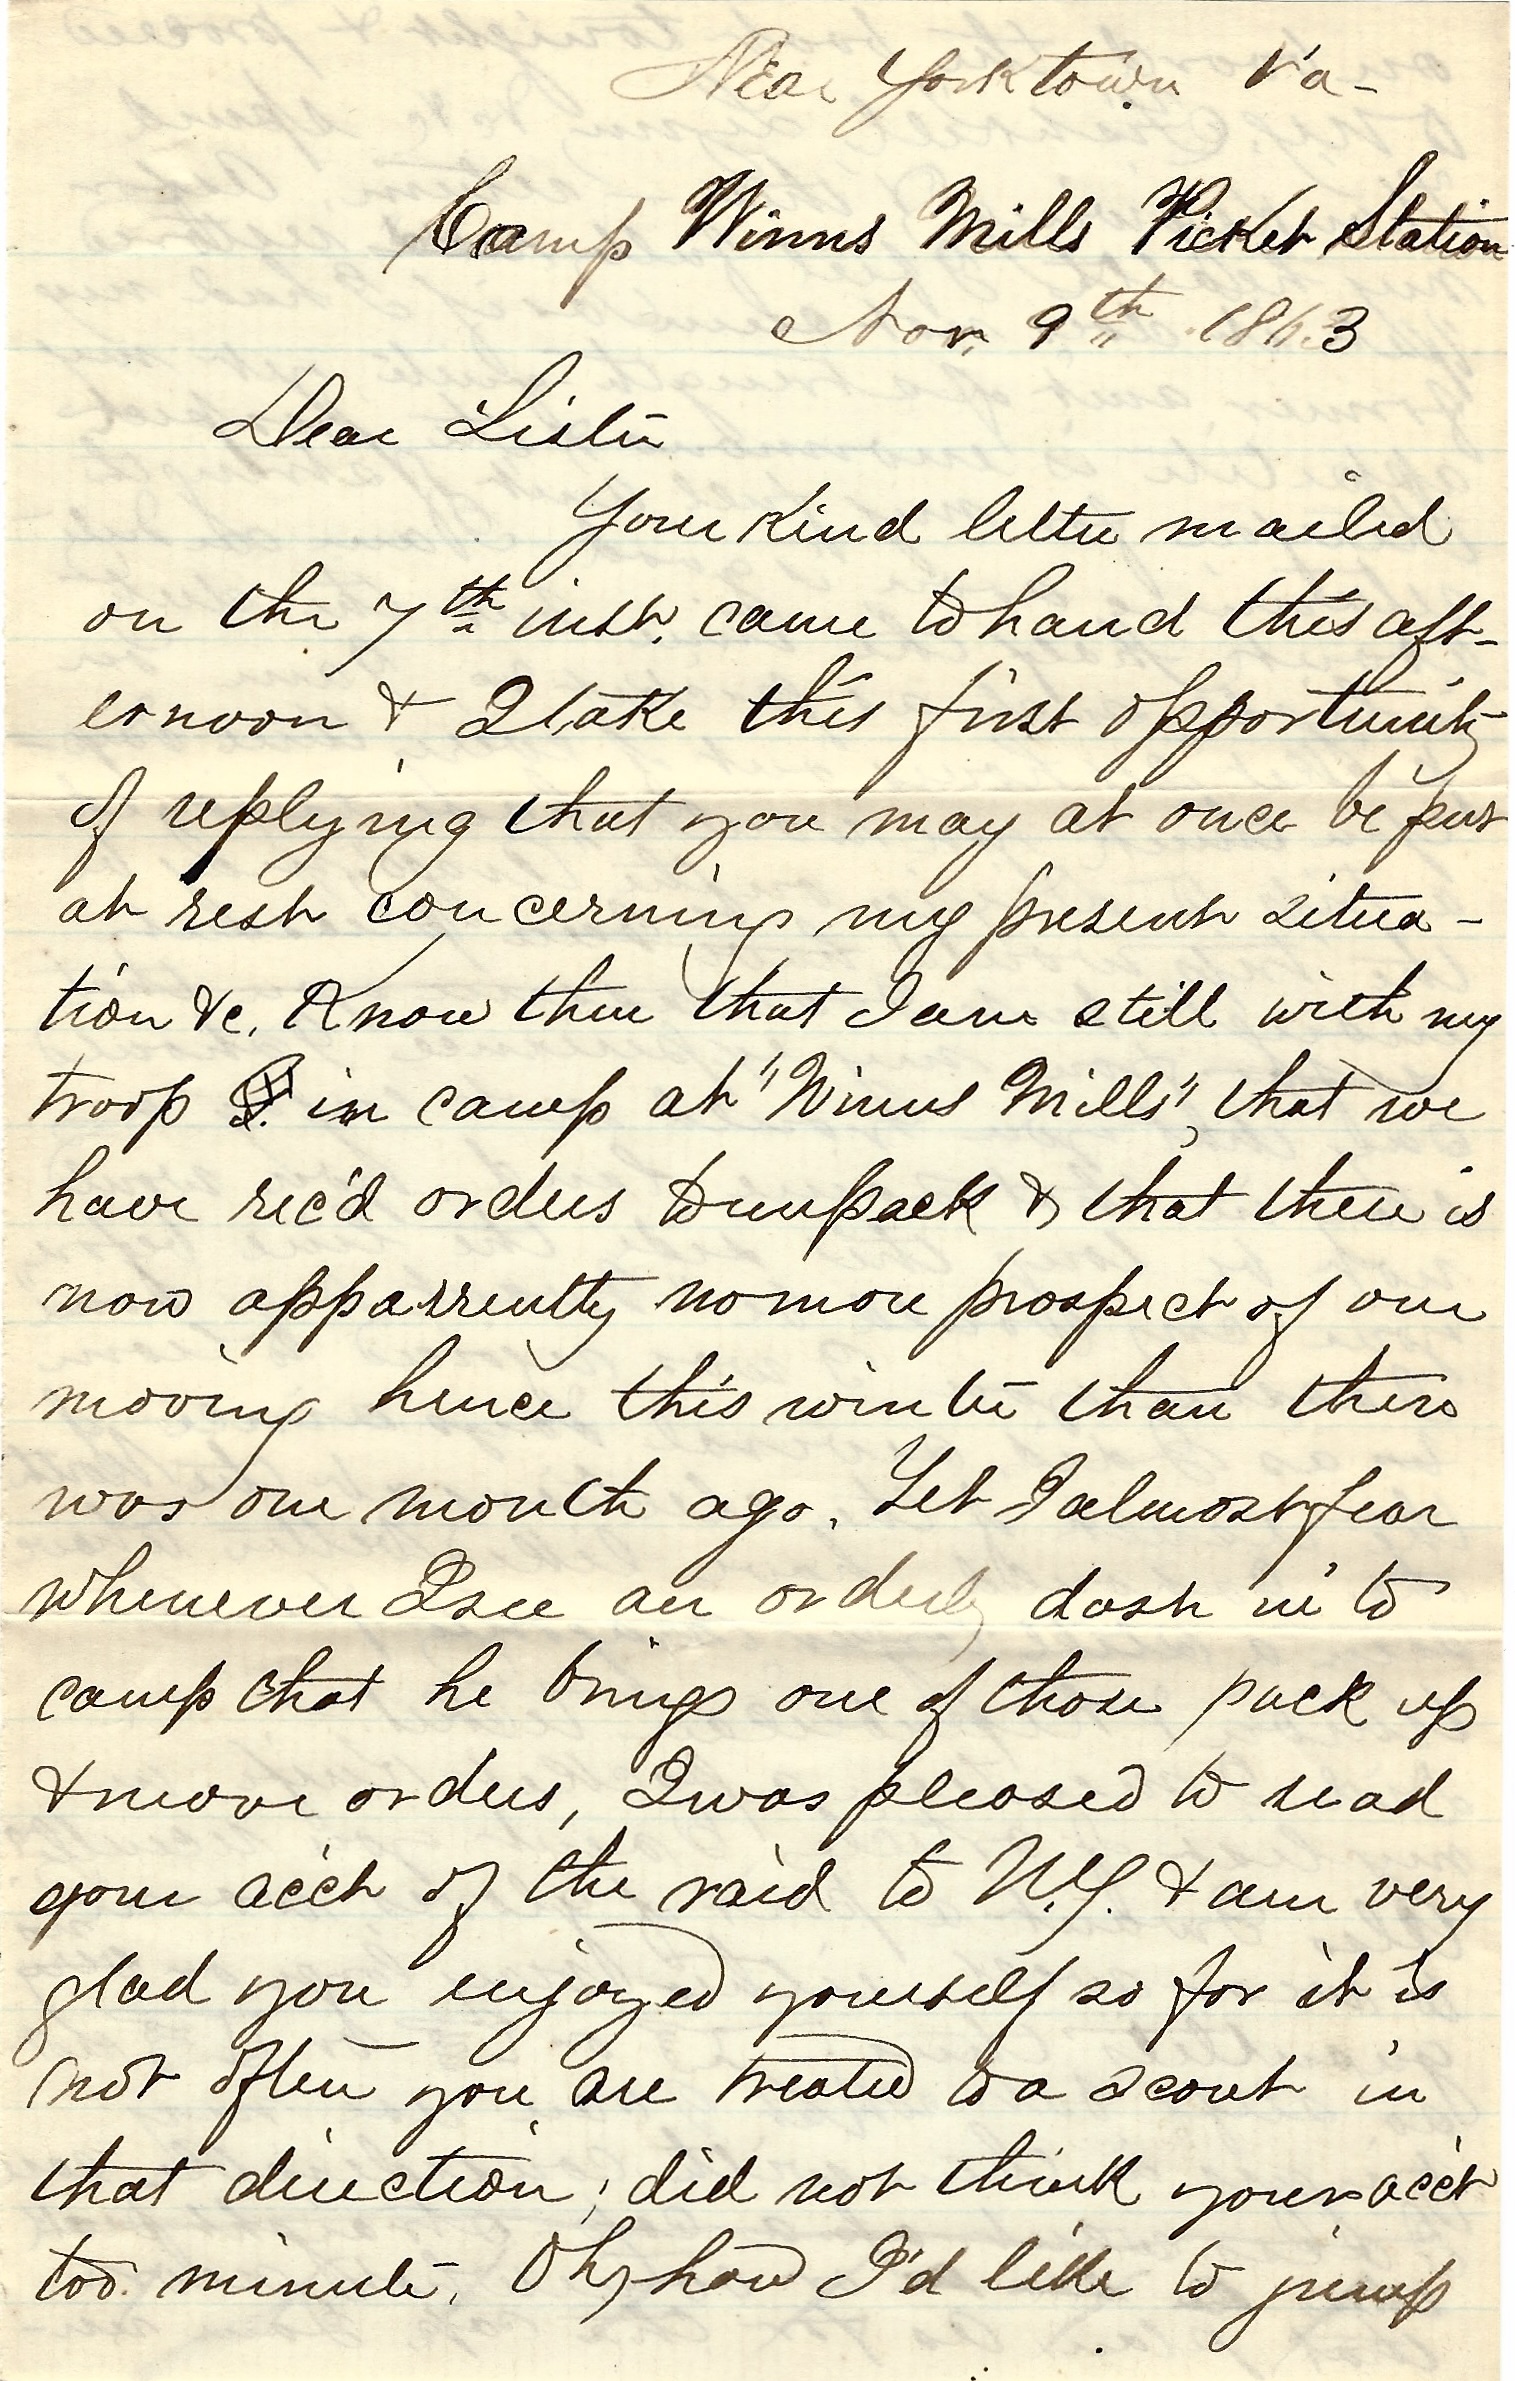 Near Yorktown Va-
Camp Winns Mills Picket Station
Nov. 9th 1863
Dear Sister
Your kind letter mailed
on the 7th inst. came to hand this aft-
ernoon & I take this first opportunity
of replying that you may at once be put
at rest concerning my present situa-
tion &c. Know then that I am still with my
troop in camp at "Winns Mills", that we
have rec'd orders to unpack & that there is
now apparrently no more prospect of our
moving hence this winter than there
was one month ago. Yet I almost fear
whenever I see an orderly dash in to
camp that he brings one of those pack up
& move orders, I was pleased to read
your acc't of the raid to N.Y. & am very
glad you enjoyed yourself so for it is
not often you are treated to a scout in
that direction; did not think your acc't
too minute. Oh, how I'd like to jump